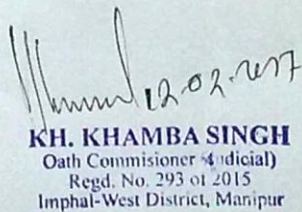 12.02.2017
KH. KHAMBA SINGH
Oath Commisioner (Judicial)
Regd. No. 293 of 2015
Imphal-West District, Manipur